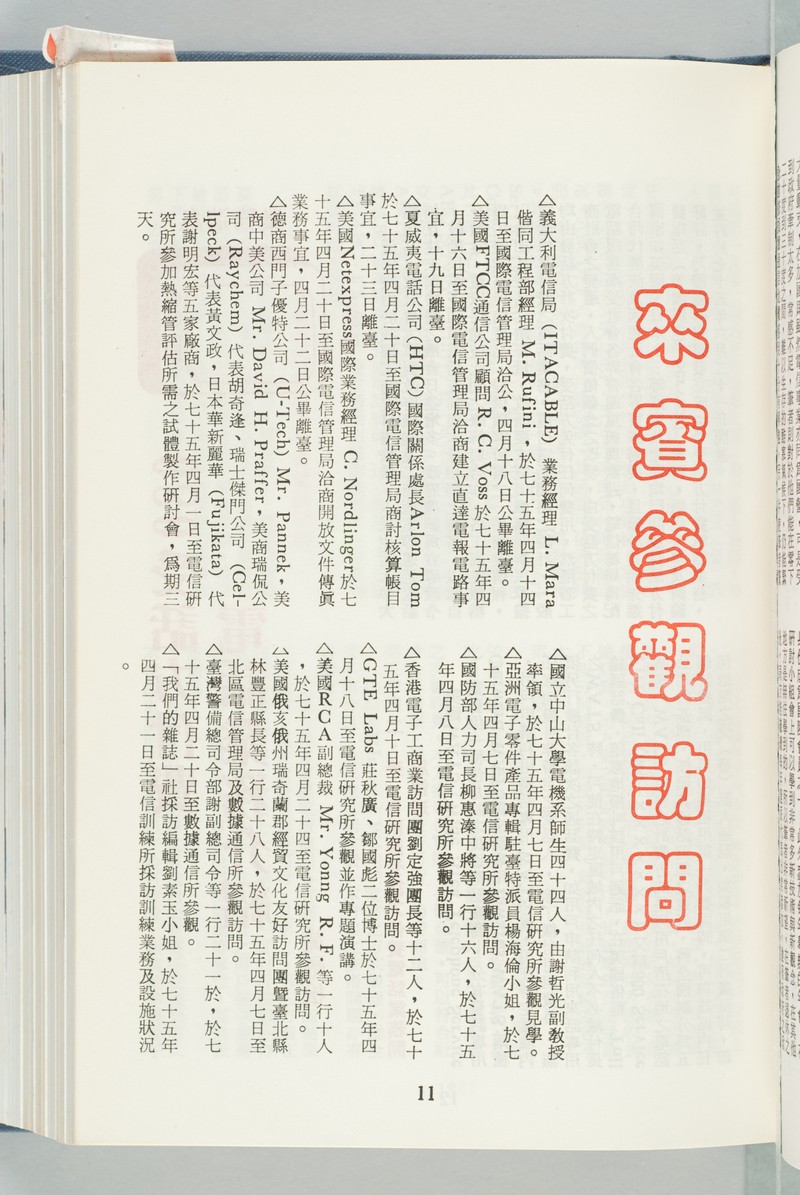 來賓參觀訪問
△義大利電信局 (ITACABLE) 業務經理 L. Mara
偕同工程部經理 M. Rufini，於七十五年四月十四
日至國際電信管理局洽公，四月十八日公畢離臺。
△美國FTCC通信公司顧問 R. C. Voss 於七十五年四
月十六日至國際電信管理局洽商建立直達電報電路事
宜，十九日離臺。
△夏威夷電話公司 (HTC) 國際關係處長Arlon Tom
於七十五年四月二十日至國際電信管理局商討核算帳目
事宜，二十三日離臺。
△美國Netexpress國際業務經理 C. Nordlinger於七
十五年四月二十日至國際電信管理局洽商開放文件傳眞
業務事宜，四月二十二日公畢離臺。
△德商西門子優特公司 (U-Tech) Mr. Pannek，美
商中美公司 Mr. David H. Praffer，美商瑞侃公
司 (Raychem) 代表胡奇逢、瑞士傑門公司 (Cel-
lpeck) 代表黃文政，日本華新麗華 (Fujikata) 代
表謝明宏等五家廠商，於七十五年四月一日至電信研
究所參加熱縮管評估所需之試體製作研討會，爲期三
天。
△國立中山大學電機系師生四十四人，由謝哲光副教授
率領，於七十五年四月七日至電信研究所參觀見學。
△亞洲電子零件產品專輯駐臺特派員楊海倫小姐，於七
十五年四月七日至電信研究所參觀訪問。
△國防部人力司長柳惠溱中將等一行十六人，於七十五
年四月八日至電信研究所參觀訪問。
△香港電子工商業訪問團劉定強團長等十二人，於七十
五年四月十日至電信研究所參觀訪問。
△GTE Labs 莊秋廣、鄒國彪二位博士於七十五年四
月十八日至電信研究所參觀並作專題演講。
△美國RCA副總裁 Mr. Yonng R. F. 等一行十人
，於七十五年四月二十四至電信研究所參觀訪問。
△美國俄亥俄州瑞奇蘭郡經貿文化友好訪問團暨臺北縣
林豐正縣長等一行二十八人，於七十五年四月七日至
北區電信管理局及數據通信所參觀訪問。
△臺灣警備總司令部謝副總司令等一行二十一於，於七
十五年四月二十日至數據通信所參觀。
△「我們的雜誌」社採訪編輯劉素玉小姐，於七十五年
四月二十一日至電信訓練所採訪訓練業務及設施狀況
。
11